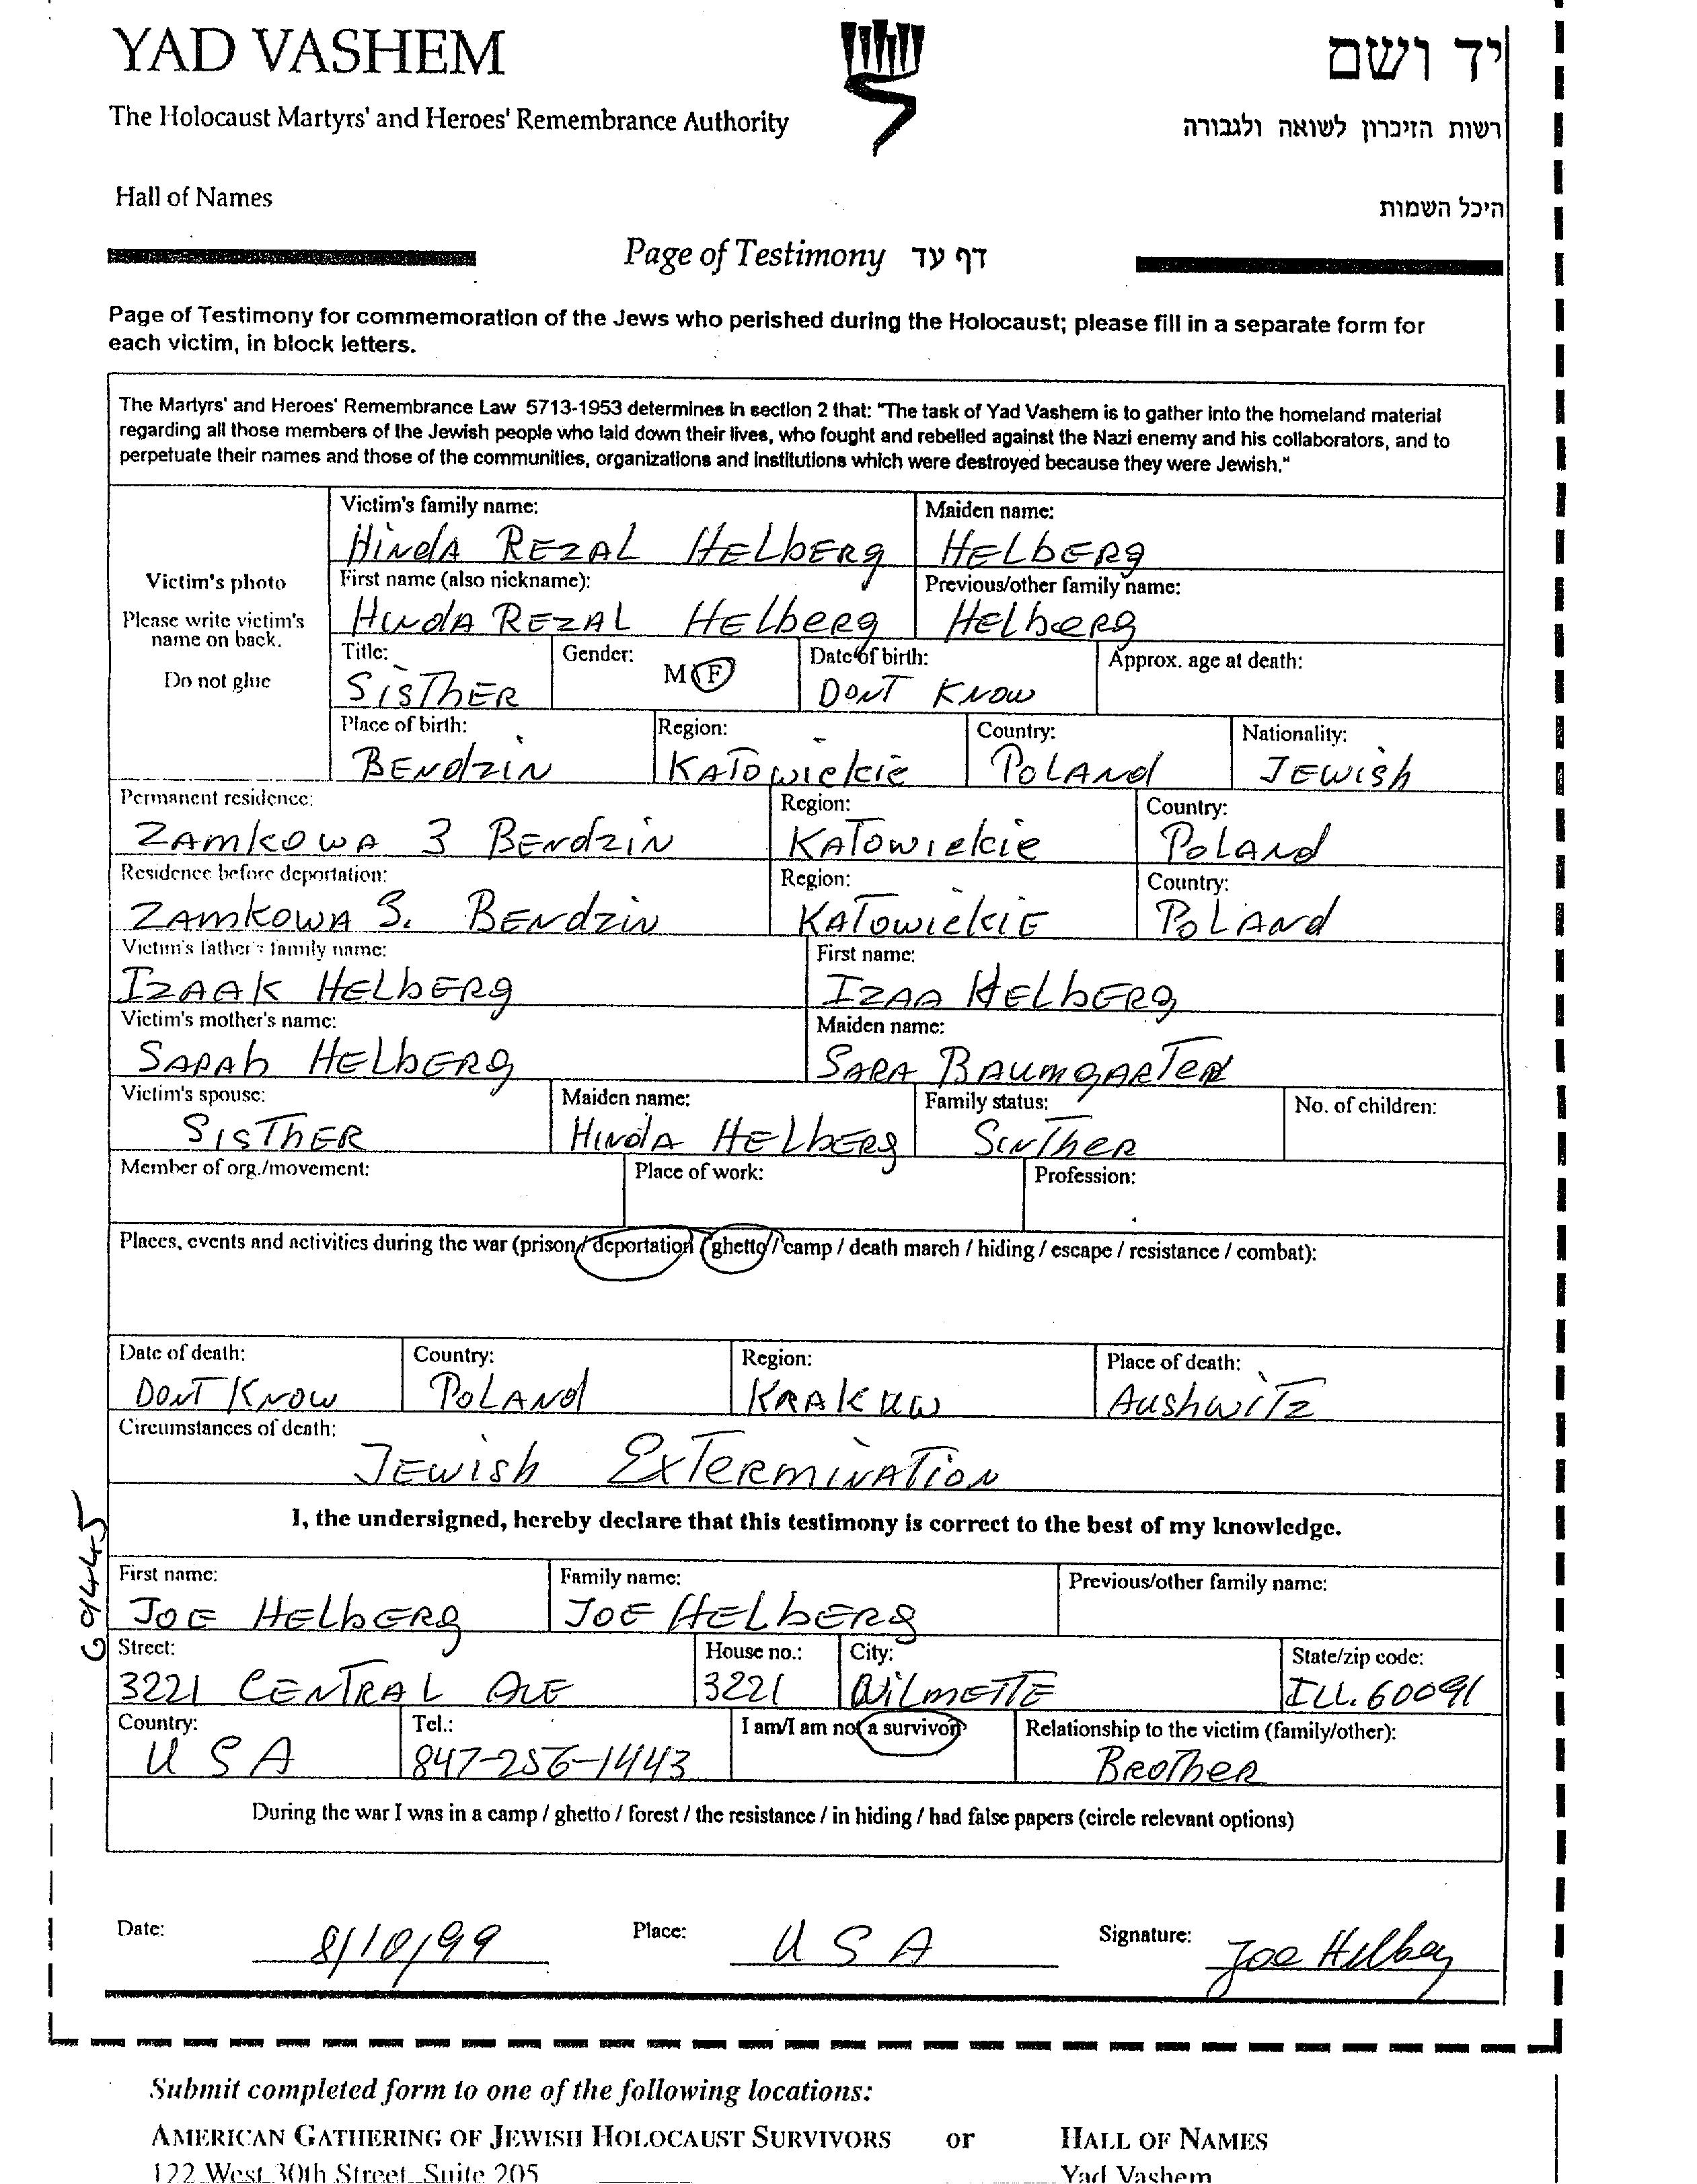 YAD VASHEM
יד ושם
The Holocaust Martyrs' and Heroes' Remembrance Authority
רשות הזיכרון לשואה ולגבורה
Hall of Names
היכל השמות
Page of Testimony דף עד
Page of Testimony for commemoration of the Jews who perished during the Holocaust; please fill in a separate form for
each victim, in block letters.
The Martyrs' and Heroes' Remembrance Law 5713-1953 determines in section 2 that: "The task of Yad Vashem is to gather into the homeland material
regarding all those members of the Jewish people who laid down their lives, who fought and rebelled against the Nazi enemy and his collaborators, and to
perpetuate their names and those of the communities, organizations and institutions which were destroyed because they were Jewish."
Victim's photo
Please write victim's
name on back.
Do not glue
Victim's family name: Maiden name:
HINdA REZAL HELbERg HELbERg
First name (also nickname): Previous/other family name:
HINdA REZAL HELbeRg HELbeRg
Title: Gender: M F Date of birth: Approx. age at death:
SISThER DONT KNOW
Place of birth: Region: Country: Nationality:
BENdziN KATOWIckie POLANd JEWish
Permanent residence: Region: Country:
ZAMKOWA 3 BENdziN KATOWIckie POLANd
Residence before deportation: Region: Country:
ZAMKOWA 3. BENdziN KATOWIckIE POLANd
Victim's father's family name: First name:
IZAAK HELbERg IZAA HELbERg
Victim's mother's name: Maiden name:
SARAh HELbERg SARA BAUMgARTEN
Victim's spouse: Maiden name: Family status: No. of children:
SISThER HINdA HELbERg SISTheR
Member of org./movement: Place of work: Profession:
Places, events and activities during the war (prison / deportation / ghetto / camp / death march / hiding / escape / resistance / combat):
Date of death: Country: Region: Place of death:
DONT KNOW POLANd KRAKUW AushwiTz
Circumstances of death:
JEWish EXTERMINATiON
I, the undersigned, hereby declare that this testimony is correct to the best of my knowledge.
First name: Family name: Previous/other family name:
JOE HELbERg JOE HELbERg
Street: House no.: City: State/zip code:
3221 CENTRAL AVE 3221 WILMETTE ILL. 60091
Country: Tel.: I am/I am not a survivor Relationship to the victim (family/other):
U S A 847-256-1443 BROTheR
During the war I was in a camp / ghetto / forest / the resistance / in hiding / had false papers (circle relevant options)
Date: 8/10/99 Place: U S A Signature: Joe Helberg
Submit completed form to one of the following locations:
AMERICAN GATHERING OF JEWISH HOLOCAUST SURVIVORS or HALL OF NAMES
122 West 30th Street, Suite 205 Yad Vashem